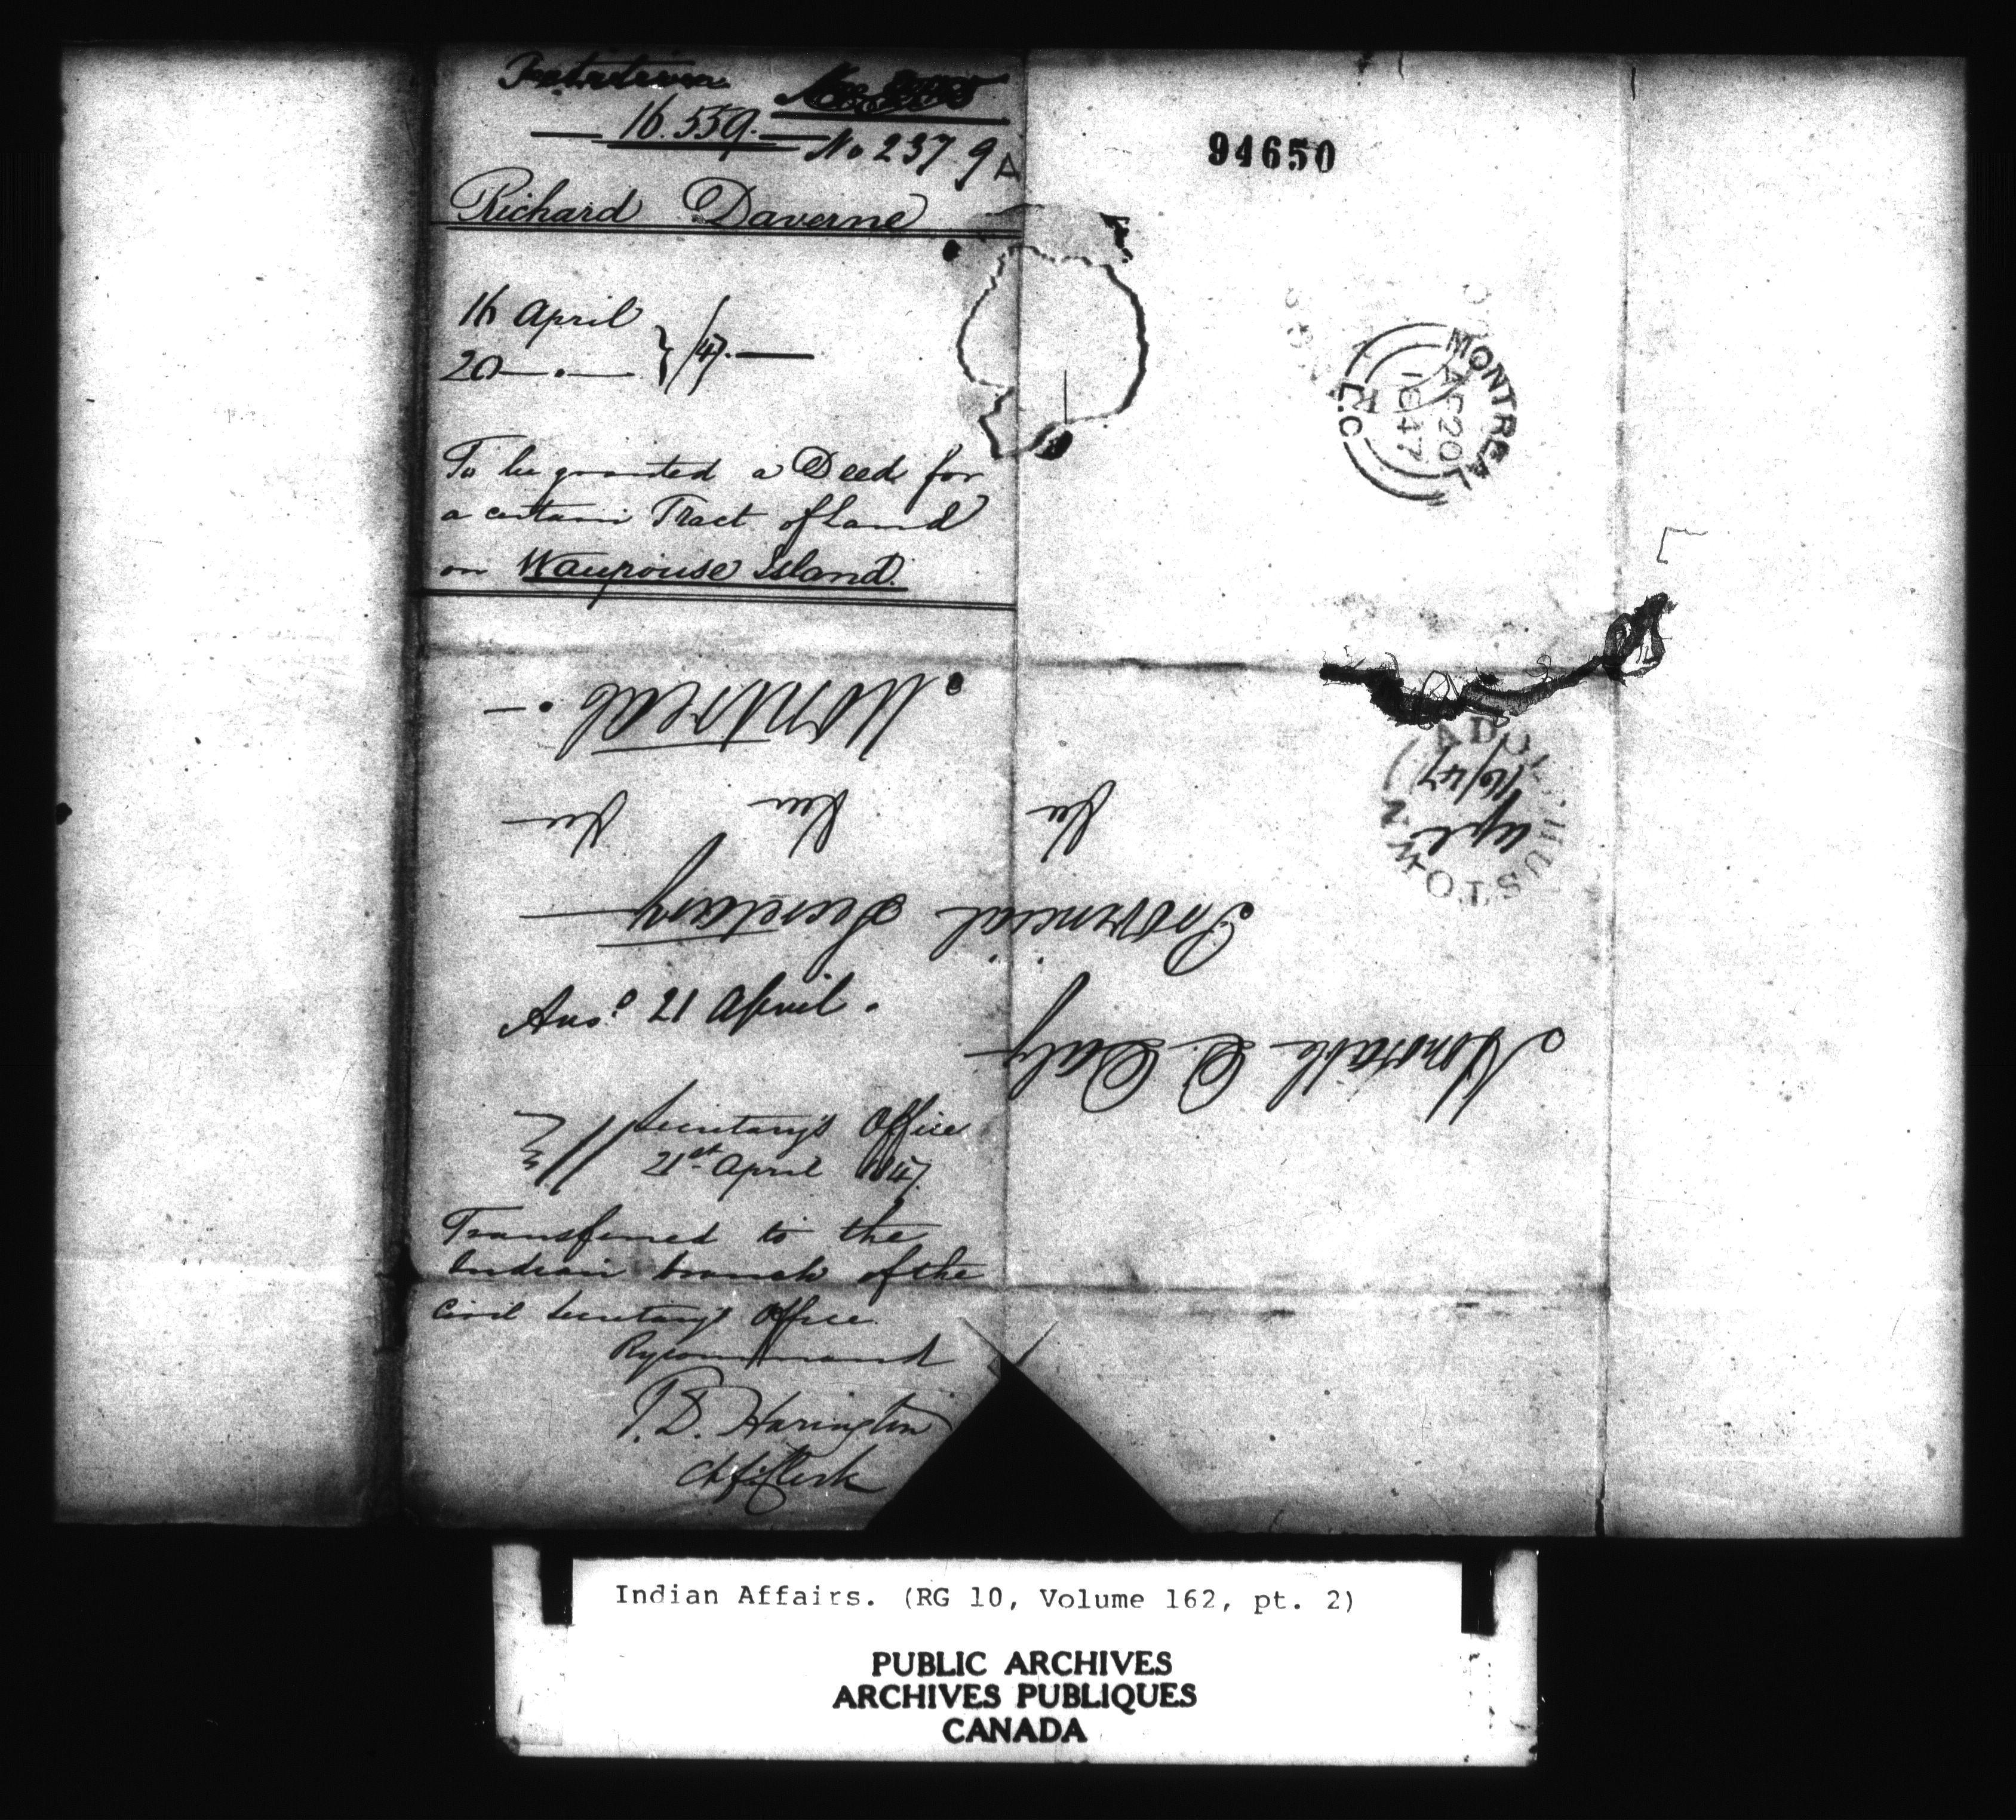 16.559.
No 237.9 A
Richard Daverne
16 April
20 — . — } /47. —
To be granted a Deed for
a certain Tract of Land
on Waupouse Island.
Montreal. —
Honorable D. Daly
Provincial Secretary
Ansd 21 April.
Secretary's Office
21st April 1847.
Transferred to the
Indian branch of the
Civil Secretary's Office.
By command
T. D. Harington
Ch: Clerk
94650
MONTREAL
AP 20
1847
L.C
ADOLPHUSTOWN
Apl
16/47
Indian Affairs. (RG 10, Volume 162, pt. 2)
PUBLIC ARCHIVES
ARCHIVES PUBLIQUES
CANADA